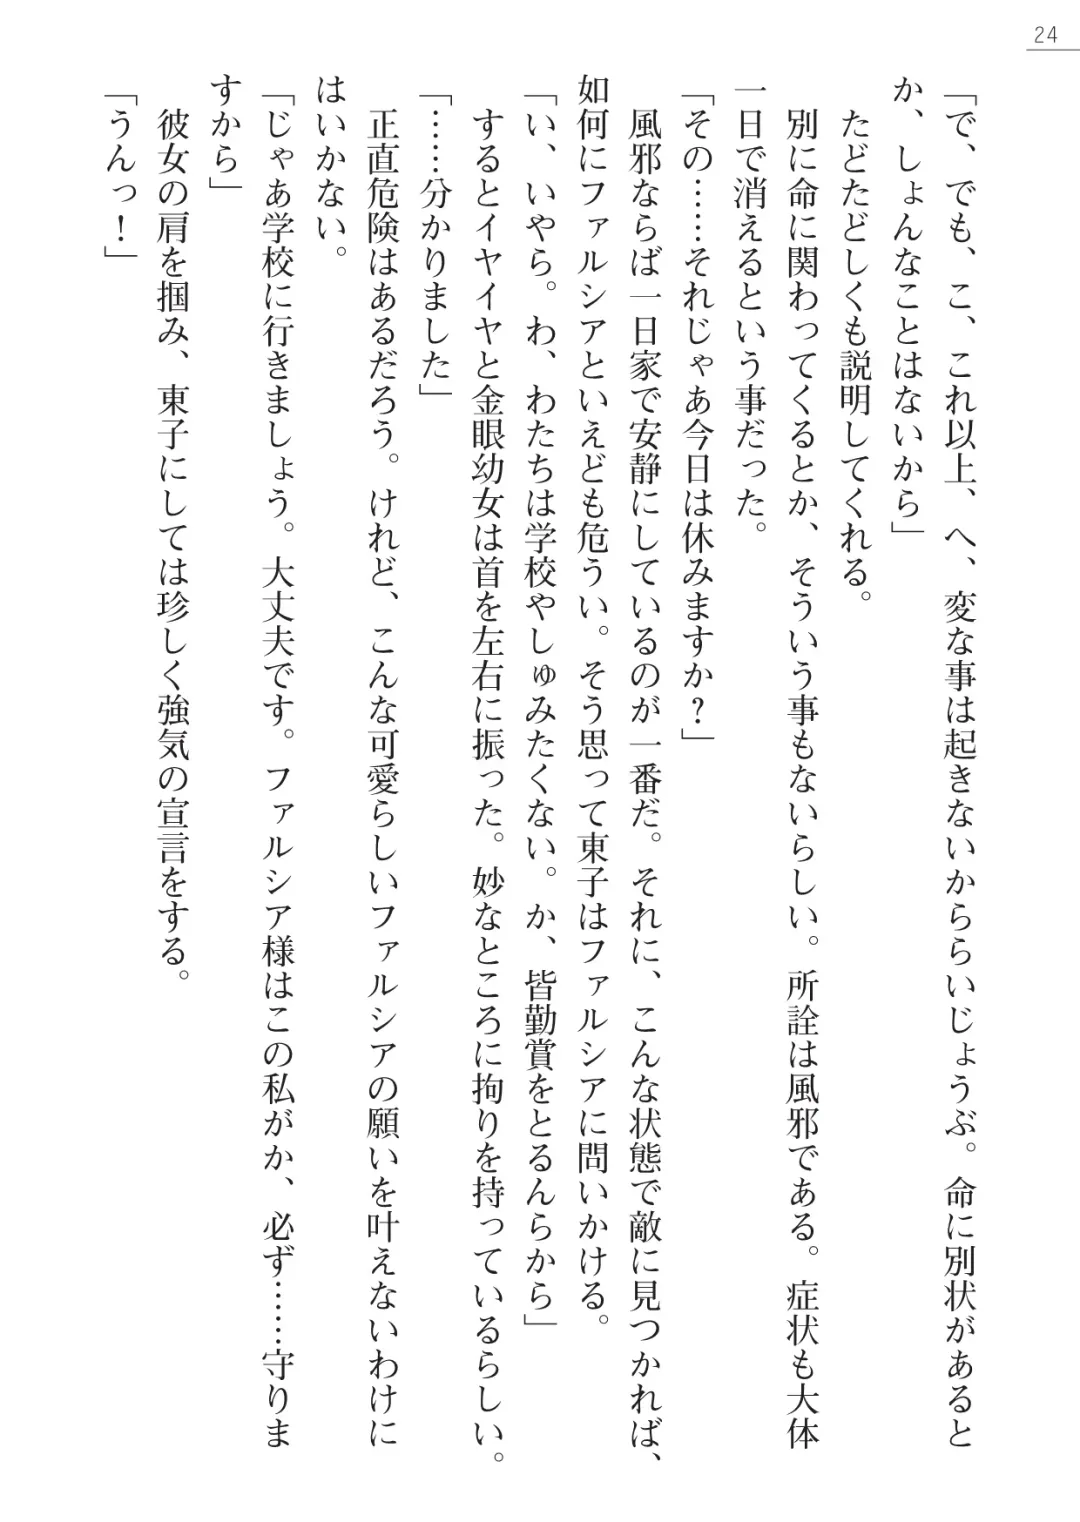 24
「で、でも、こ、これ以上、へ、変な事は起きないかららいじょうぶ。命に別状があると
か、しょんなことはないから」
たどたどしくも説明してくれる。
別に命に関わってくるとか、そういう事もないらしい。所詮は風邪である。症状も大体
一日で消えるという事だった。
「その……それじゃあ今日は休みますか？」
風邪ならば一日家で安静にしているのが一番だ。それに、こんな状態で敵に見つかれば、
如何にファルシアといえども危うい。そう思って東子はファルシアに問いかける。
「い、いやら。わ、わたちは学校やしゅみたくない。か、皆勤賞をとるんらから」
するとイヤイヤと金眼幼女は首を左右に振った。妙なところに拘りを持っているらしい。
「……分かりました」
正直危険はあるだろう。けれど、こんな可愛らしいファルシアの願いを叶えないわけに
はいかない。
「じゃあ学校に行きましょう。大丈夫です。ファルシア様はこの私がか、必ず……守りま
すから」
彼女の肩を掴み、東子にしては珍しく強気の宣言をする。
「うんっ！」